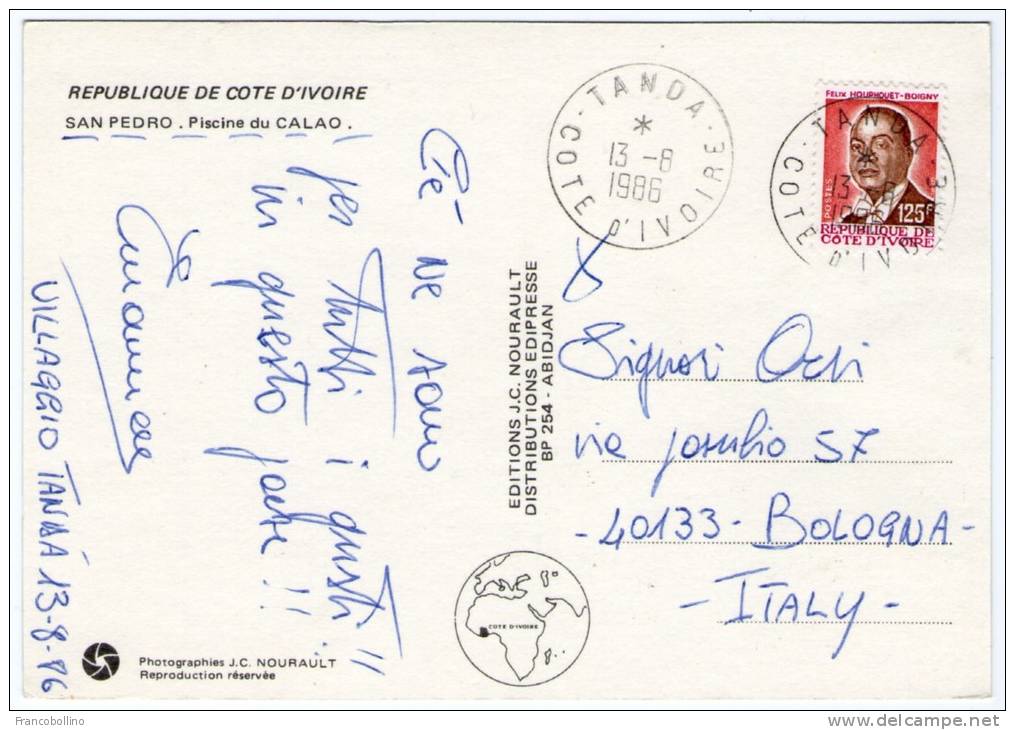 REPUBLIQUE DE COTE D'IVOIRE
SAN PEDRO . Piscine du CALAO .
Ce ne sono
per tutti i gusti !!
in questo paese !!
VILLAGGIO TANDÀ 13-8-86
TANDA
13 -8
1986
COTE D'IVOIRE
FELIX HOUPHOUET-BOIGNY
POSTES
125F
REPUBLIQUE DE
CÔTE D'IVOIRE
TANDA
13 -8
1986
COTE D'IV
EDITIONS J.C. NOURAULT
DISTRIBUTIONS EDIPRESSE
BP 254 - ABIDJAN
Signori
via 57
- 40133 - BOLOGNA -
- ITALY -
COTE D'IVOIRE
Photographies J.C. NOURAULT
Reproduction réservée
Francobollino
delcampe.net